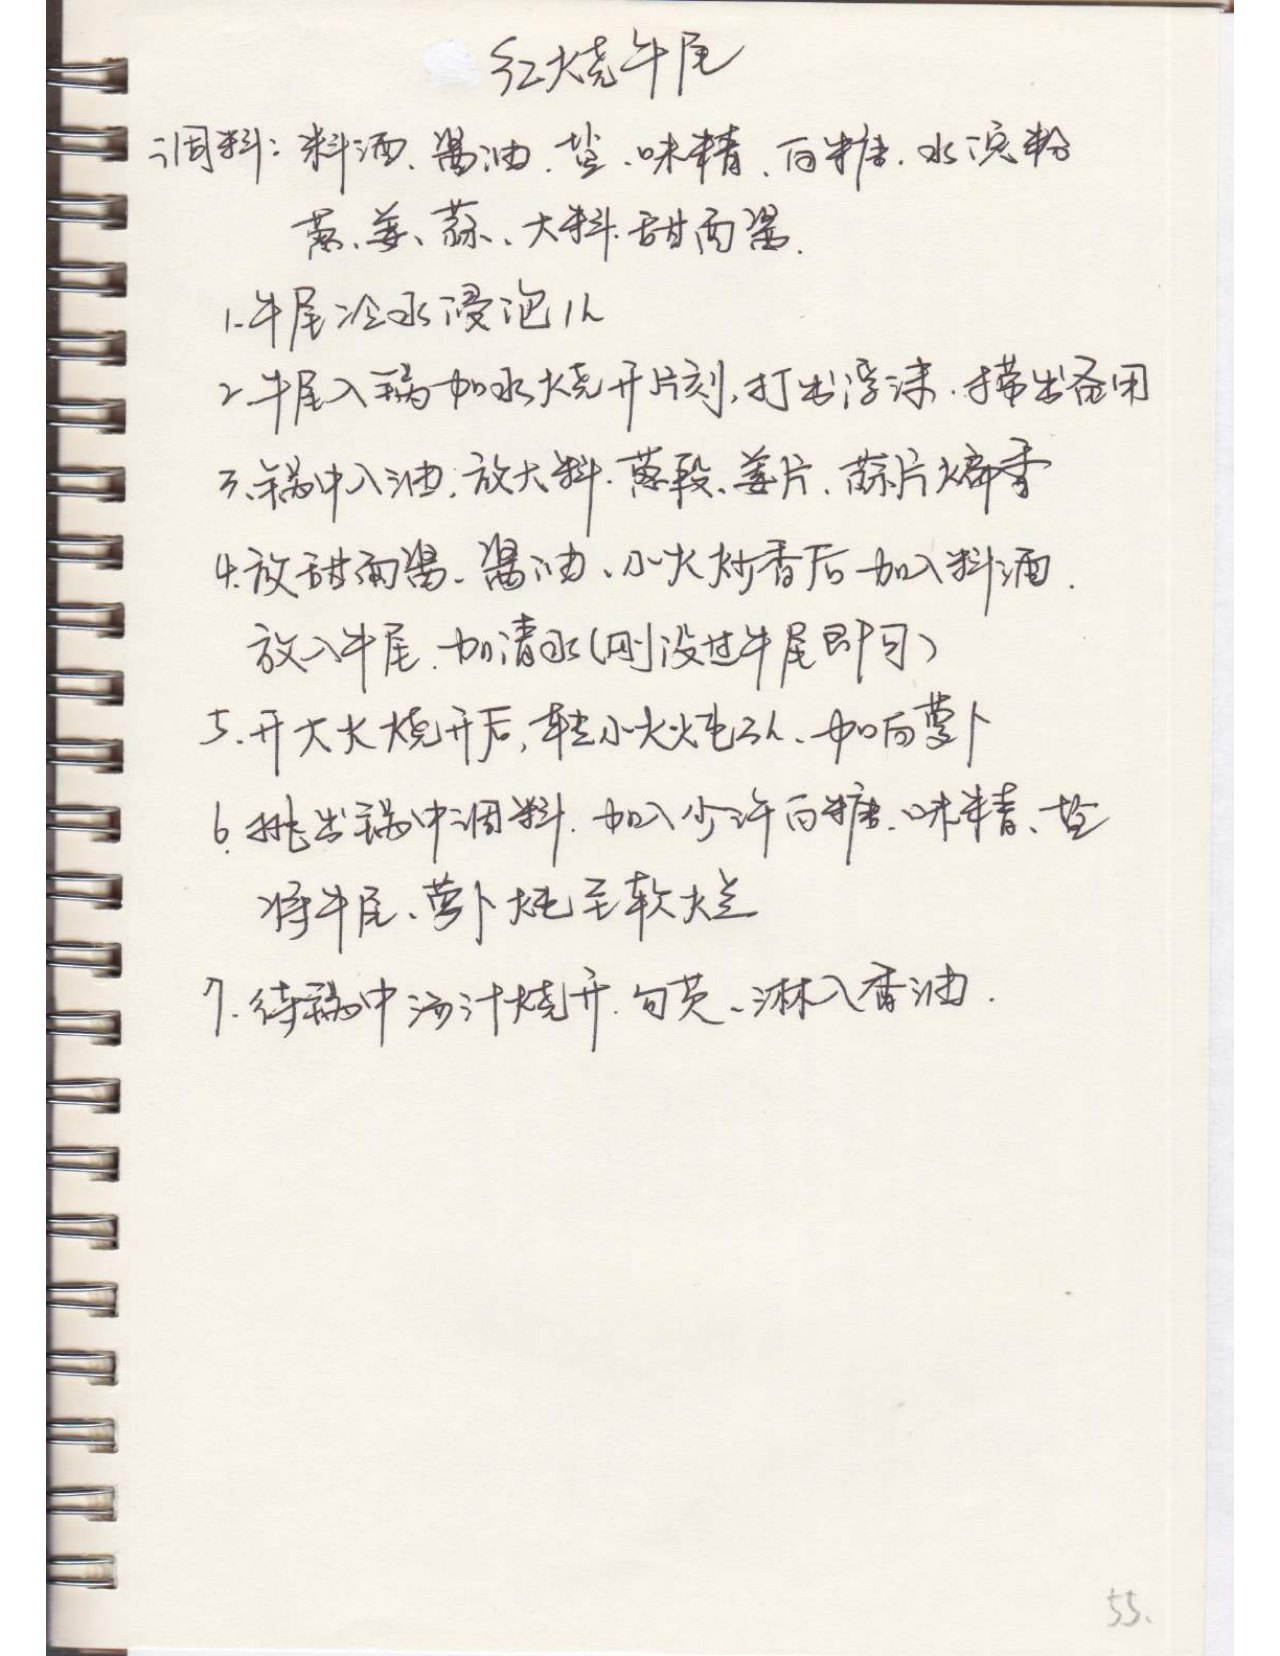 红烧牛尾
调料：料酒、酱油、盐、味精、白糖、水淀粉
葱、姜、蒜、大料、甜面酱.
1.牛尾冷水浸泡1h
2.牛尾入锅加水烧开片刻,打出浮沫.捞出备用
3.锅中入油.放大料.葱段、姜片.蒜片煸香
4.放甜面酱、酱油、小火炒香后加入料酒.
放入牛尾.加清水(刚没过牛尾即可)
5.开大火烧开后,转小火炖3h、加白萝卜
6.挑出锅中调料.加入少许白糖、味精、盐
将牛尾、萝卜炖至软烂
7.待锅中汤汁烧开.勾芡、淋入香油.
55.